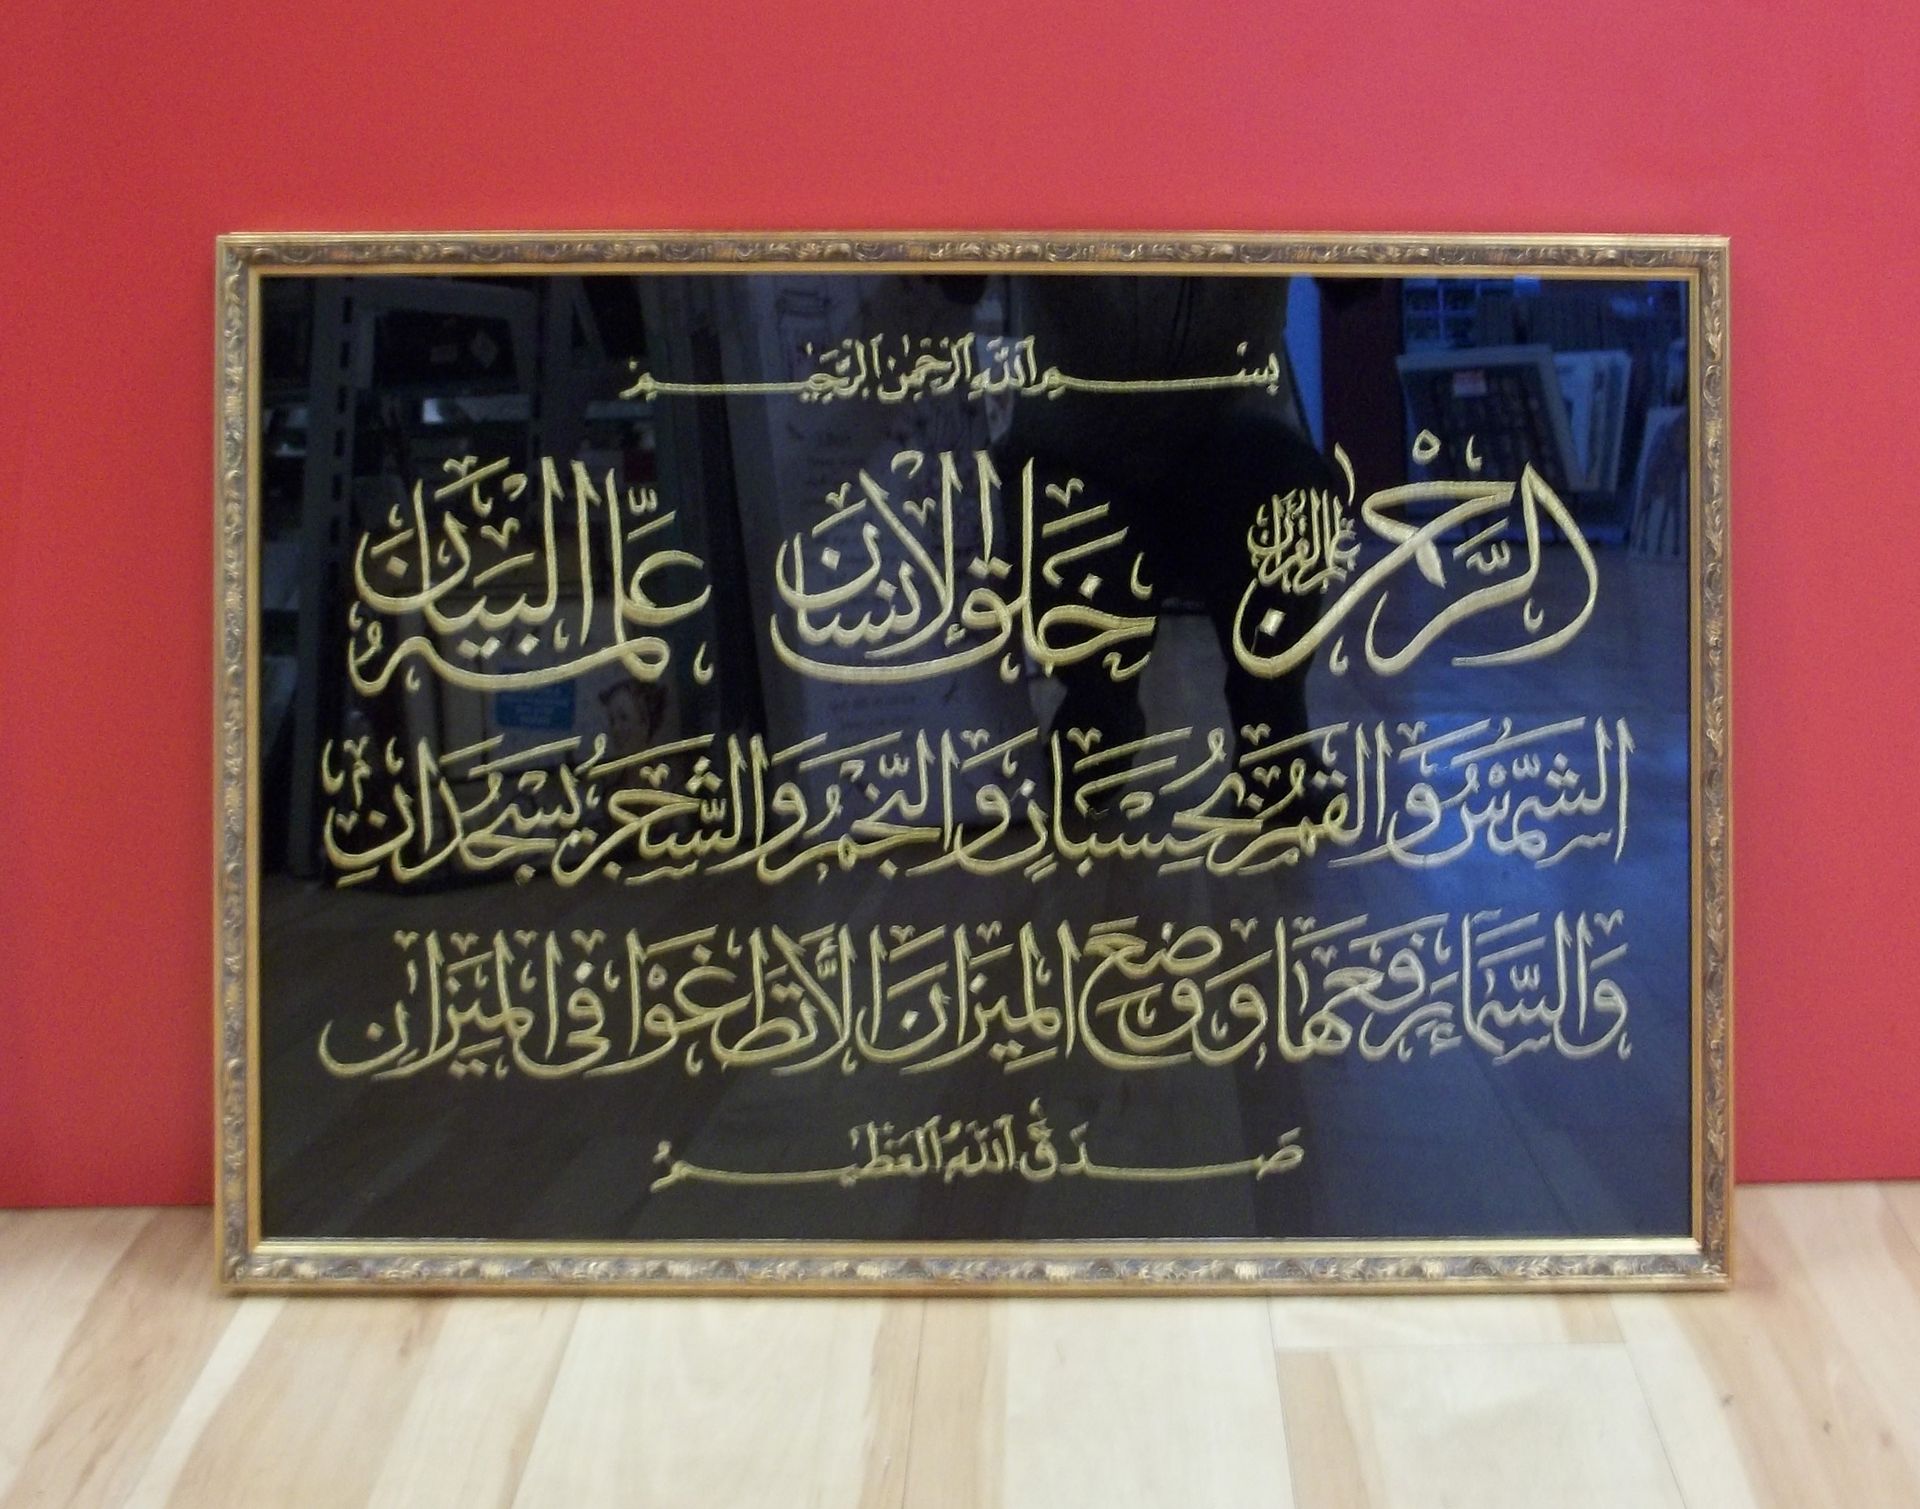 بِسْمِ اللّٰهِ الرَّحْمٰنِ الرَّحِيْمِ
الرَّحْمٰنُ عَلَّمَ الْقُرْاٰنَ خَلَقَ الْاِنْسَانَ عَلَّمَهُ الْبَيَانَ
الشَّمْسُ وَالْقَمَرُ بِحُسْبَانٍ وَالنَّجْمُ وَالشَّجَرُ يَسْجُدَانِ
وَالسَّمَاءَ رَفَعَهَا وَوَضَعَ الْمِيزَانَ اَلَّا تَطْغَوْا فِى الْمِيزَانِ
صَدَقَ اللّٰهُ الْعَظِيْمُ